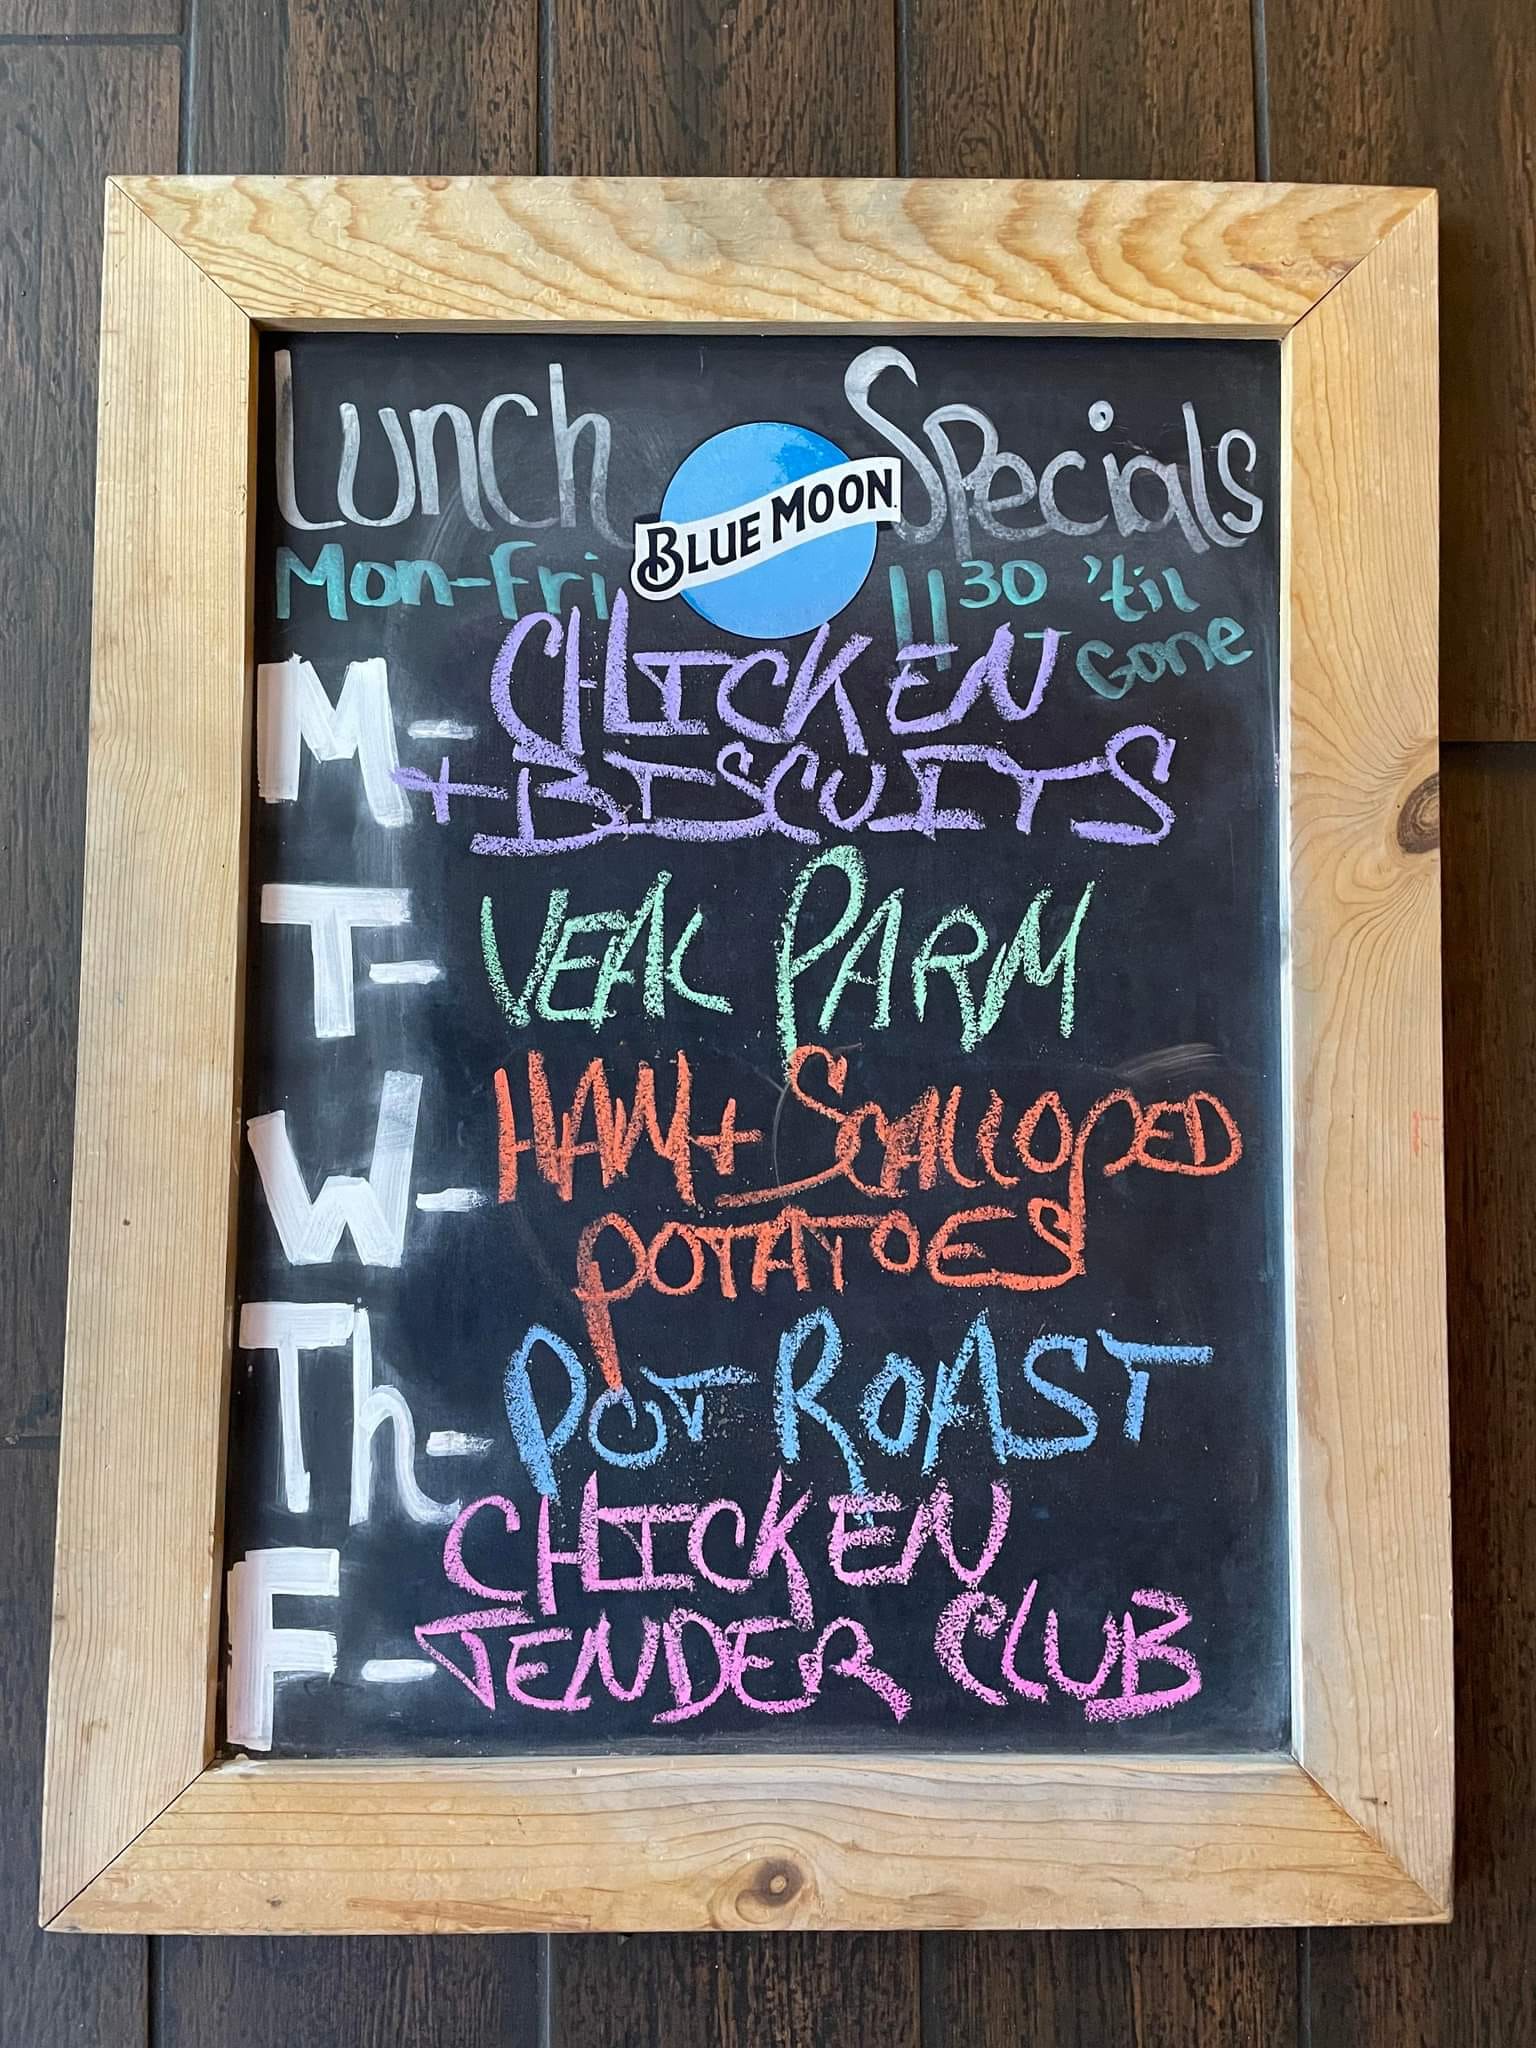 Lunch Specials
BLUE MOON
Mon-Fri 11 30 'til Gone
M- CHICKEN
+ BISCUITS
T- VEAL PARM
W- HAM + SCALLOPED
POTATOES
Th- POT ROAST
F- CHICKEN
TENDER CLUB